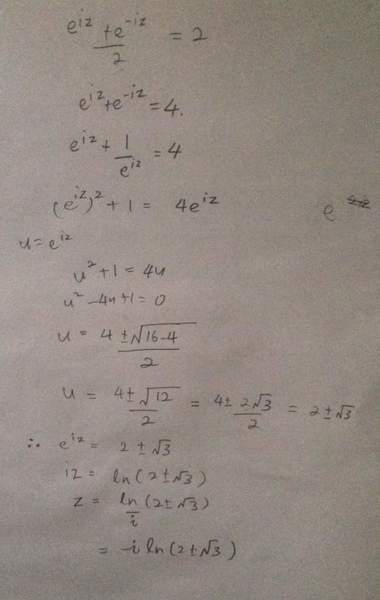 (e^{iz} + e^{-iz})/2 = 2
e^{iz} + e^{-iz} = 4.
e^{iz} + 1/e^{iz} = 4
(e^{iz})^2 + 1 = 4e^{iz} e
u = e^{iz}
u^2 + 1 = 4u
u^2 - 4u + 1 = 0
u = (4 ± √(16-4))/2
u = (4 ± √12)/2 = (4 ± 2√3)/2 = 2 ± √3
∴ e^{iz} = 2 ± √3
iz = ln(2 ± √3)
z = ln/i (2 ± √3)
= -i ln(2 ± √3)